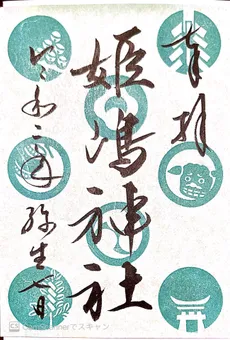 奉拝
姫嶋神社
令和二年
弥生七日
CS CamScannerでスキャン